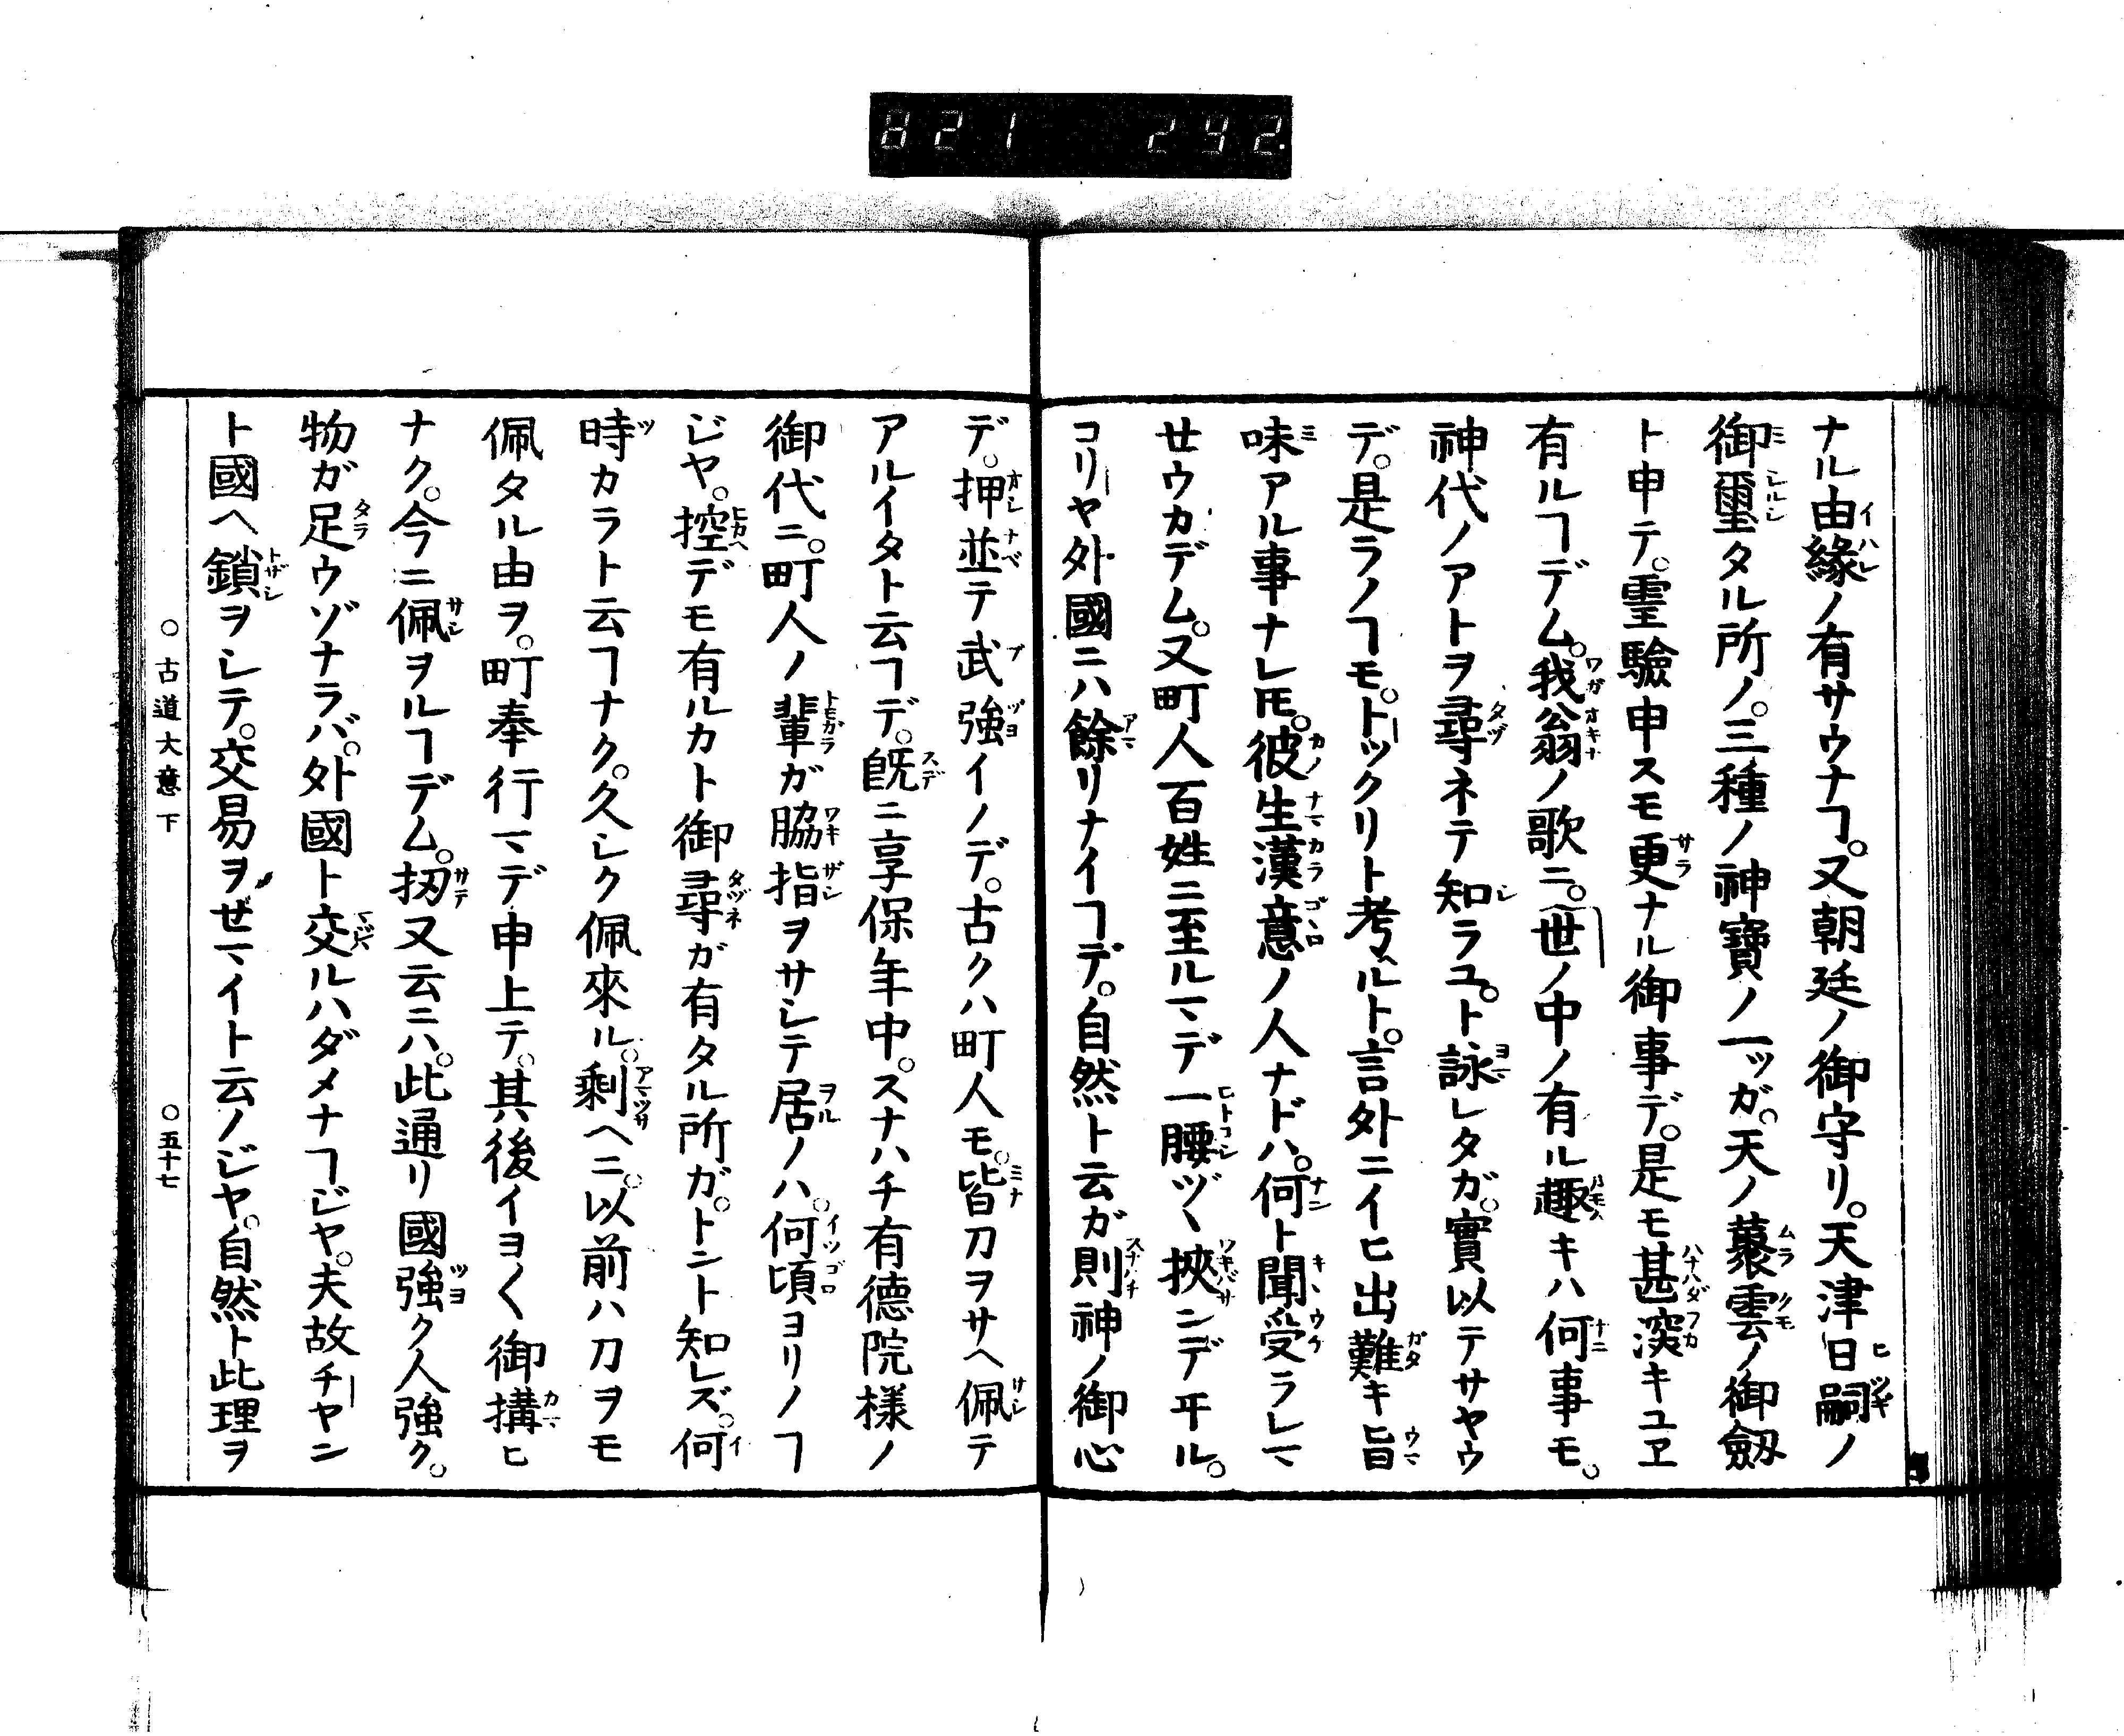 821 242.
ナル由縁ノ有サウナヿ。又朝廷ノ御守リ。天津日嗣ノ
御璽タル所ノ。三種ノ神寶ノ一ッガ。天ノ䕺雲ノ御劔
ト申テ。霊驗申スモ更ナル御事デ。是モ甚深キユヱ
有ルヿデム。我翁ノ歌ニ。世ノ中ノ有ル趣キハ何事モ。
神代ノアトヲ尋ネテ知ラユ。ト詠レタガ。實以テサヤウ
デ。是ラノヿモ。トーックリト考ヘルト。言外ニイヒ出難キ旨
味アル事ナレ𪜈。彼生漢意ノ人ナドハ。何ト聞受ラレマ
セウカデム。又町人百姓ニ至ルマデ一腰ヅヽ挾ンデヰル。
コリーヤ外國ニハ餘リナイヿデ。自然ト云ガ則神ノ御心
デ。押並テ武強イノデ。古クハ町人モ。皆刀ヲサヘ佩テ
アルイタト云ヿデ。既ニ享保年中。スナハチ有德院様ノ
御代ニ。町人ノ輩ガ脇指ヲサシテ居ノハ。何頃ヨリノヿ
ジヤ。控デモ有ルカト御尋ガ有タル所ガ。トント知レズ。何
時カラト云ヿナク。久シク佩來ル。剰ヘニ。以前ハ刀ヲモ
佩タル由ヲ。町奉行マデ申上テ。其後イヨ〱御構ヒ
ナク。今ニ佩ヲルヿデム。扨又云ニハ。此通リ國強ク人強ク。
物ガ足ウゾナラバ。外國ト交ルハダメナヿジヤ。夫故チーヤン
ト國ヘ鎖ヲシテ。交易ヲゼマイト云ノジヤ。自然ト此理ヲ
○古道大意下 ○五十七